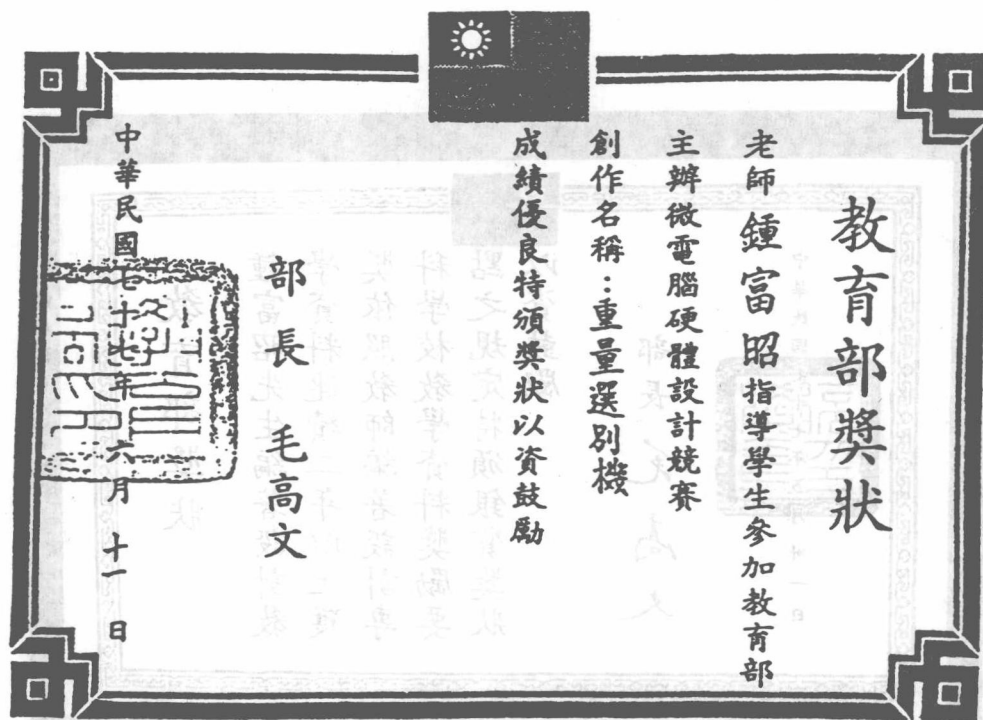 教育部獎狀
老師鍾富昭指導學生參加教育部
主辦微電腦硬體設計競賽
創作名稱：重量選別機
成績優良特頒獎狀以資鼓勵
部長 毛高文
中華民國七十七年六月十一日